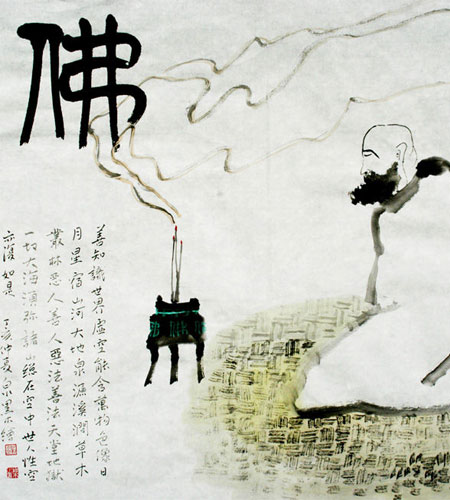 佛
善知識世界虛空能含萬物色像日
月星宿山河大地泉源溪澗草木
叢林恶人善人惡法善法天堂地獄
一切大海須弥諸山總在空中世人性空
亦復如是 丁亥仲夏